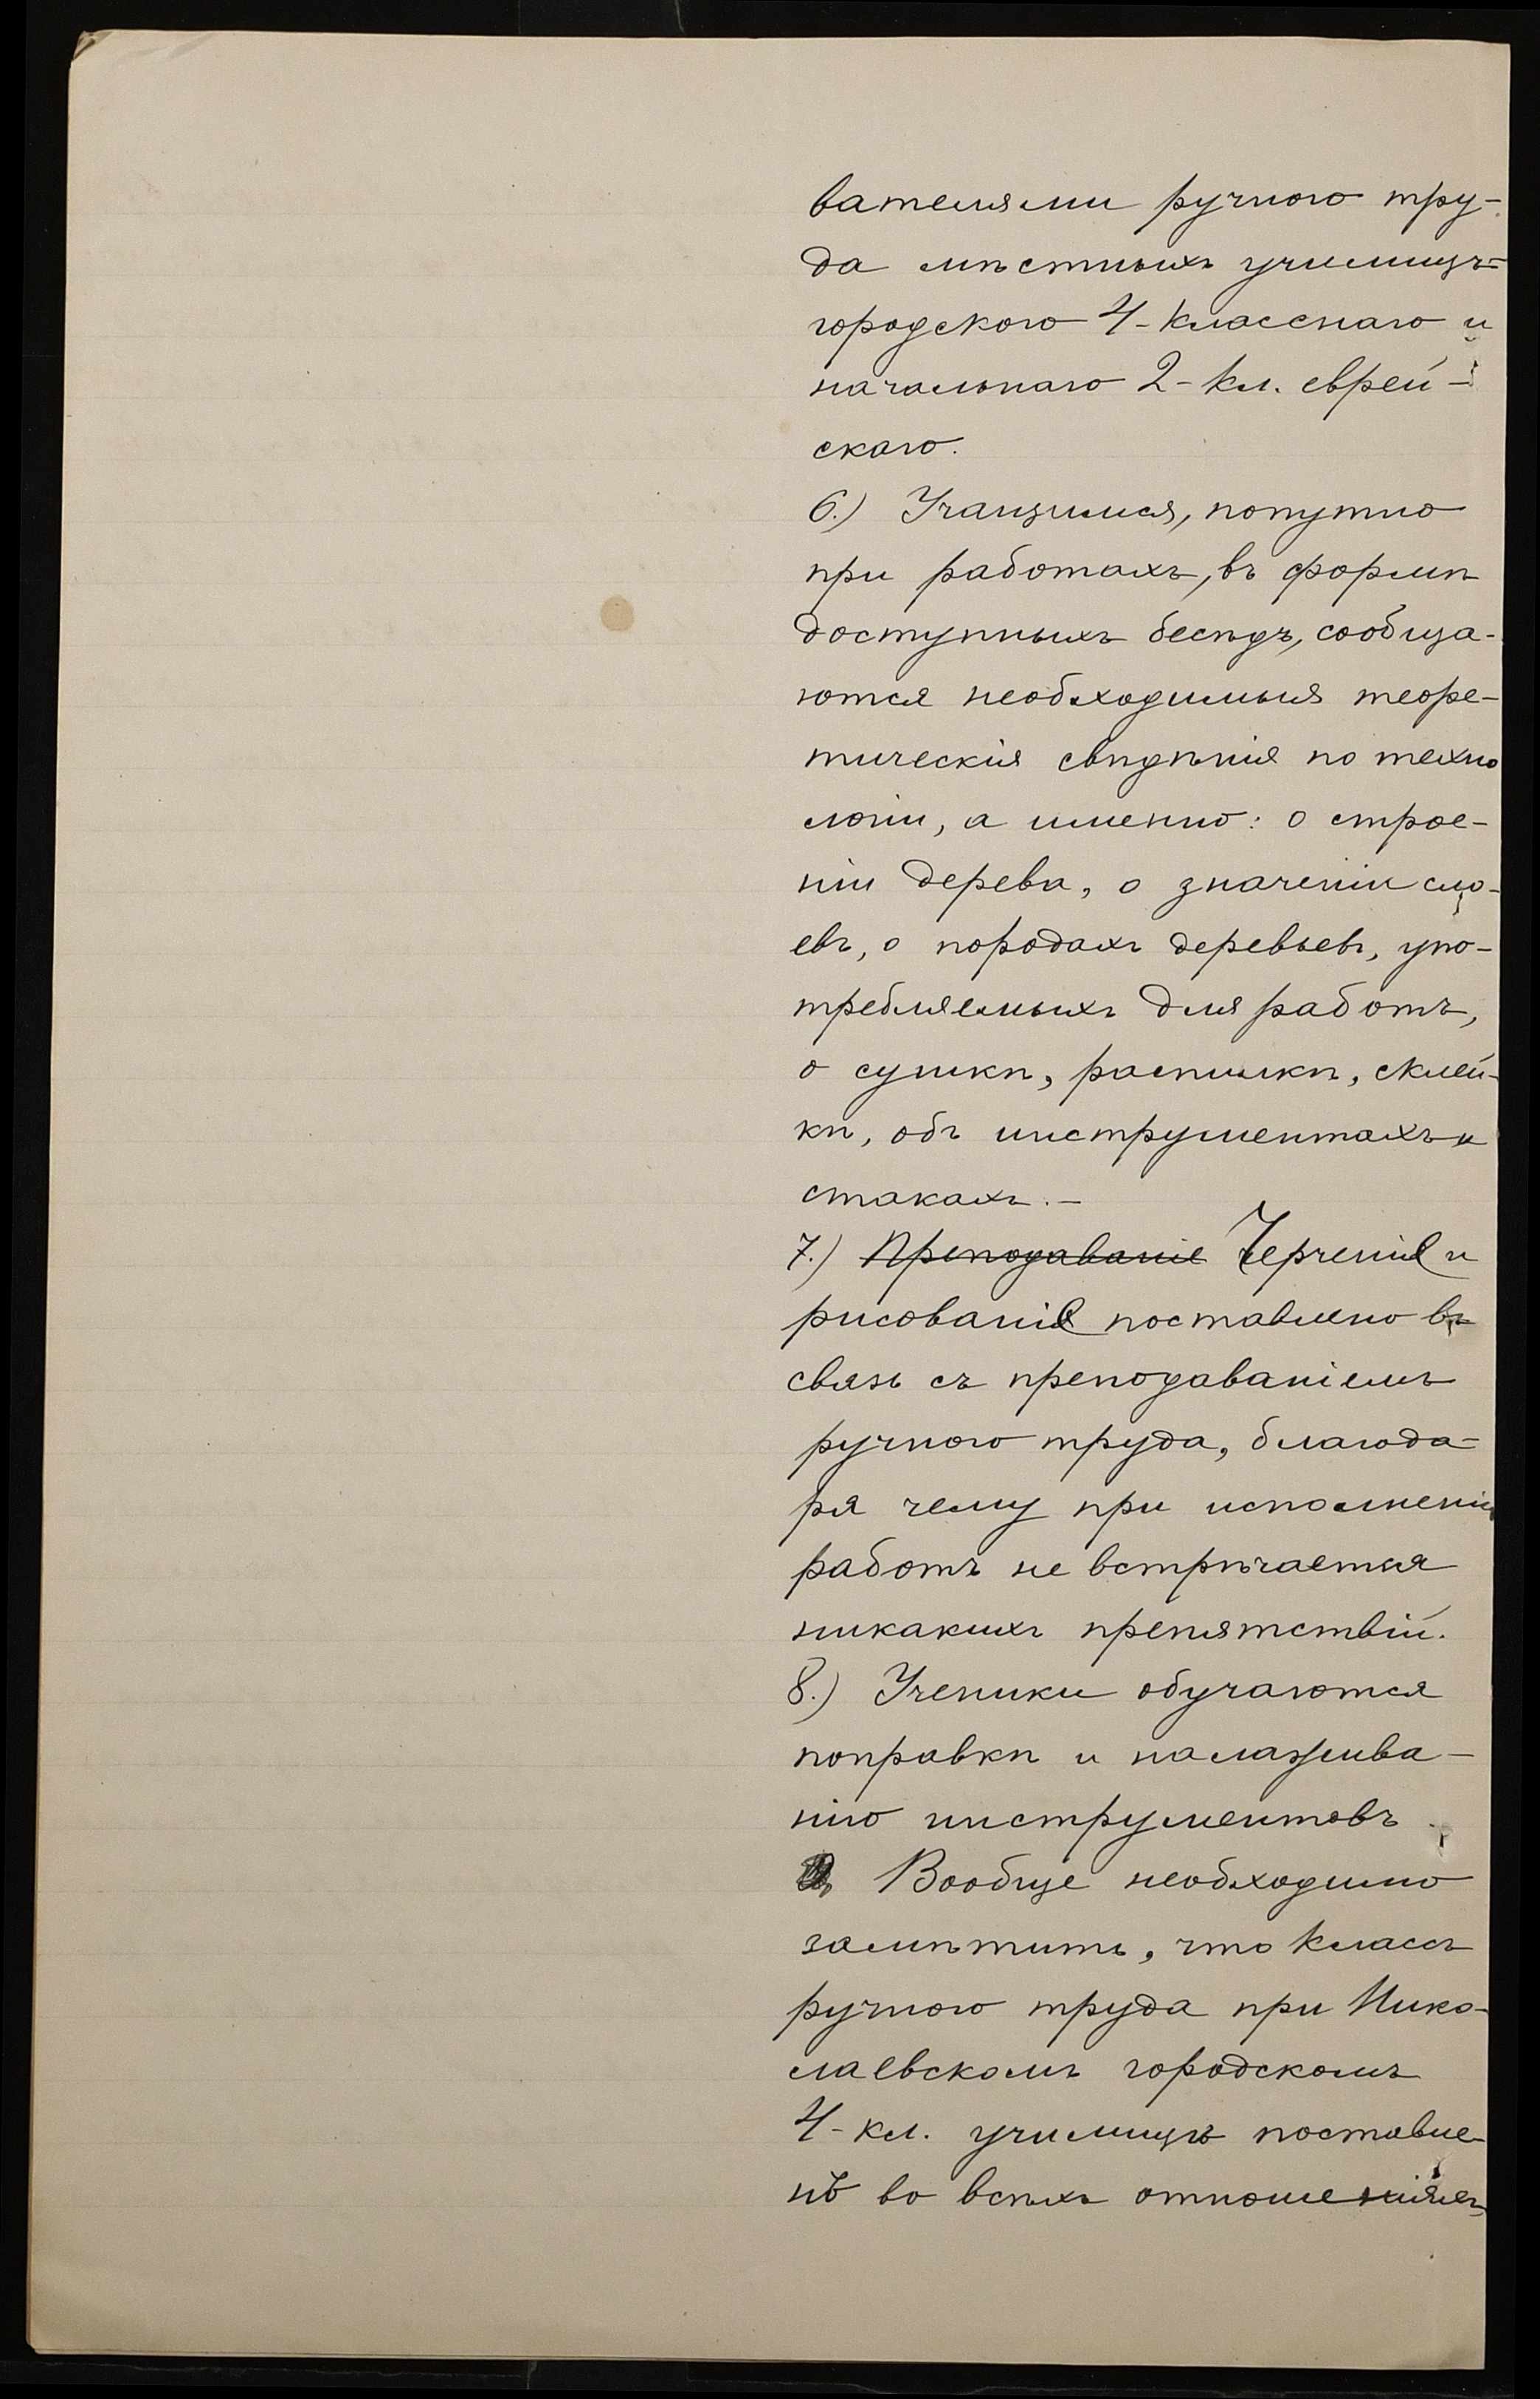 вателями ручного тру-
да мѣстныхъ училищъ=
городского 4-класснаго и
начальнаго 2-кл. еврей-
скаго.
6.) Учащимся, попутно
при работахъ, въ формѣ
доступныхъ бесѣдъ, сообща-
ются необходимыя теоре-
тическія свѣдѣнія по техно
логіи, а именно: о строе-
ніи дерева, о значеніи сло-
евъ, о породахъ деревьевъ, упо-
требляемыхъ для работъ,
о сушкѣ, распилкѣ, склей-
кѣ, объ инструментахъ и
станкахъ.-
7.) Преподаваніе Черченіе и
рисованіе поставлено въ
связь съ преподаваніемъ
ручного труда, благода-
ря чему при исполненіи
работъ не встрѣчается
никакихъ препятствій.
8.) Ученики обучаются
поправкѣ и налажива-
нію инструментовъ.
Вообще необходимо
замѣтить, что классъ
ручного труда при Нико-
лаевскомъ городскомъ
4-кл. училищѣ поставле-
нъ во всѣхъ отношеніяхъ